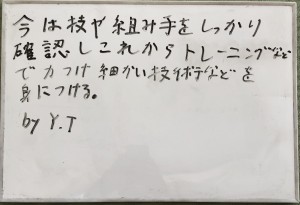 今は技や組み手をしっかり
確認しこれからトレーニングなど
で力つけ細かい技術などを
身につける。
by Y.T